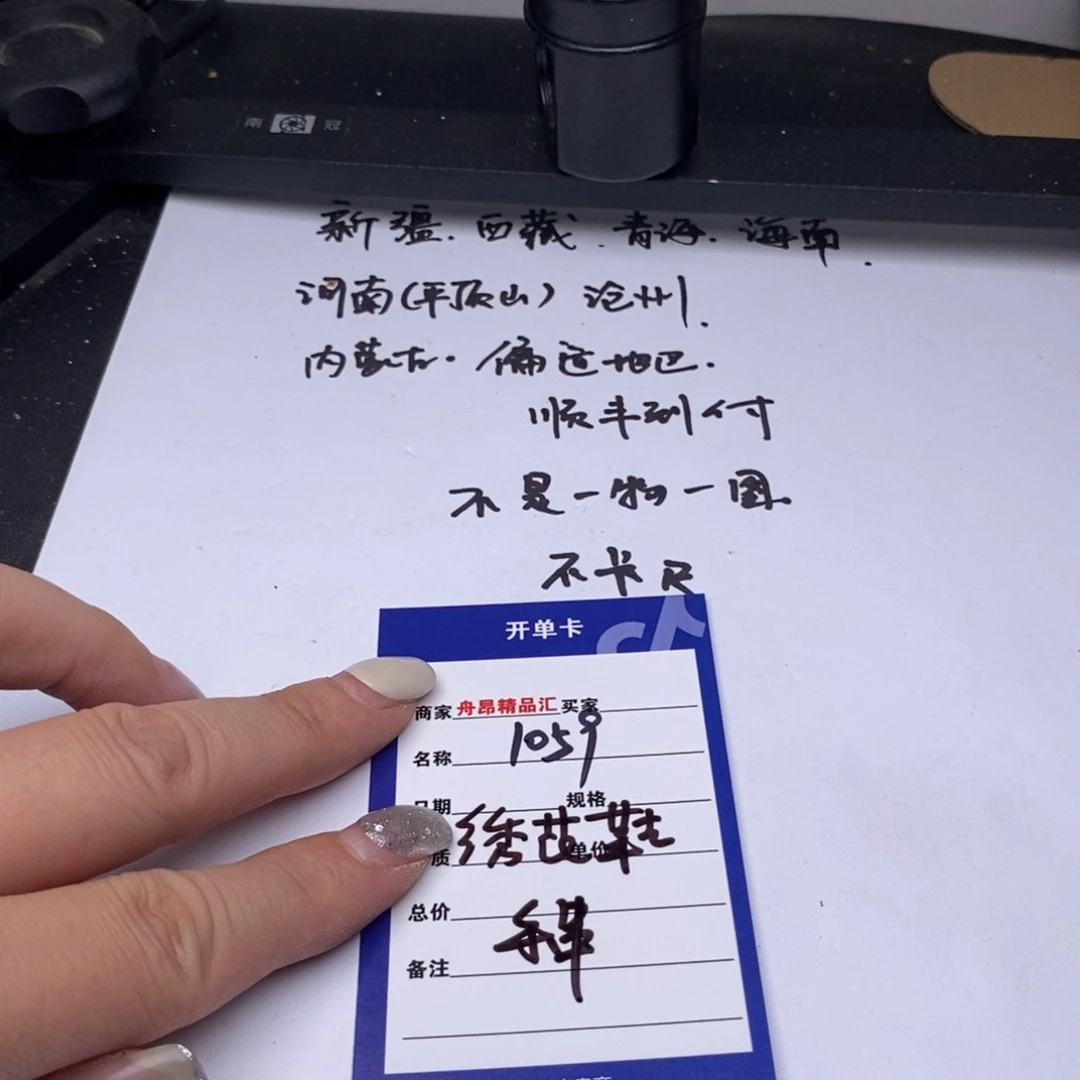 南 冠
新疆.西藏.青海.海南.
河南(平顶山)沧州.
内蒙古.偏远地区.
顺丰到付
不是一物一图.
不卡尺
开单卡
商家 舟昂精品汇 买家
名称 1059
日期 规格
质 绣花鞋 单价
总价
备注